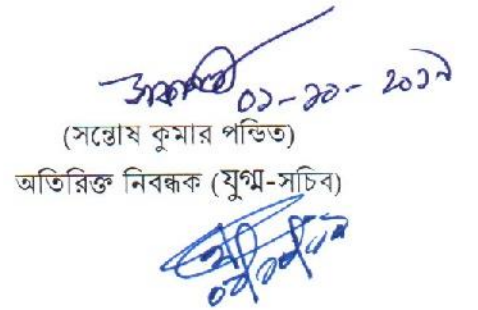 ০১-১০-২০১৭
(সন্তোষ কুমার পন্ডিত)
অতিরিক্ত নিবন্ধক (যুগ্ম-সচিব)